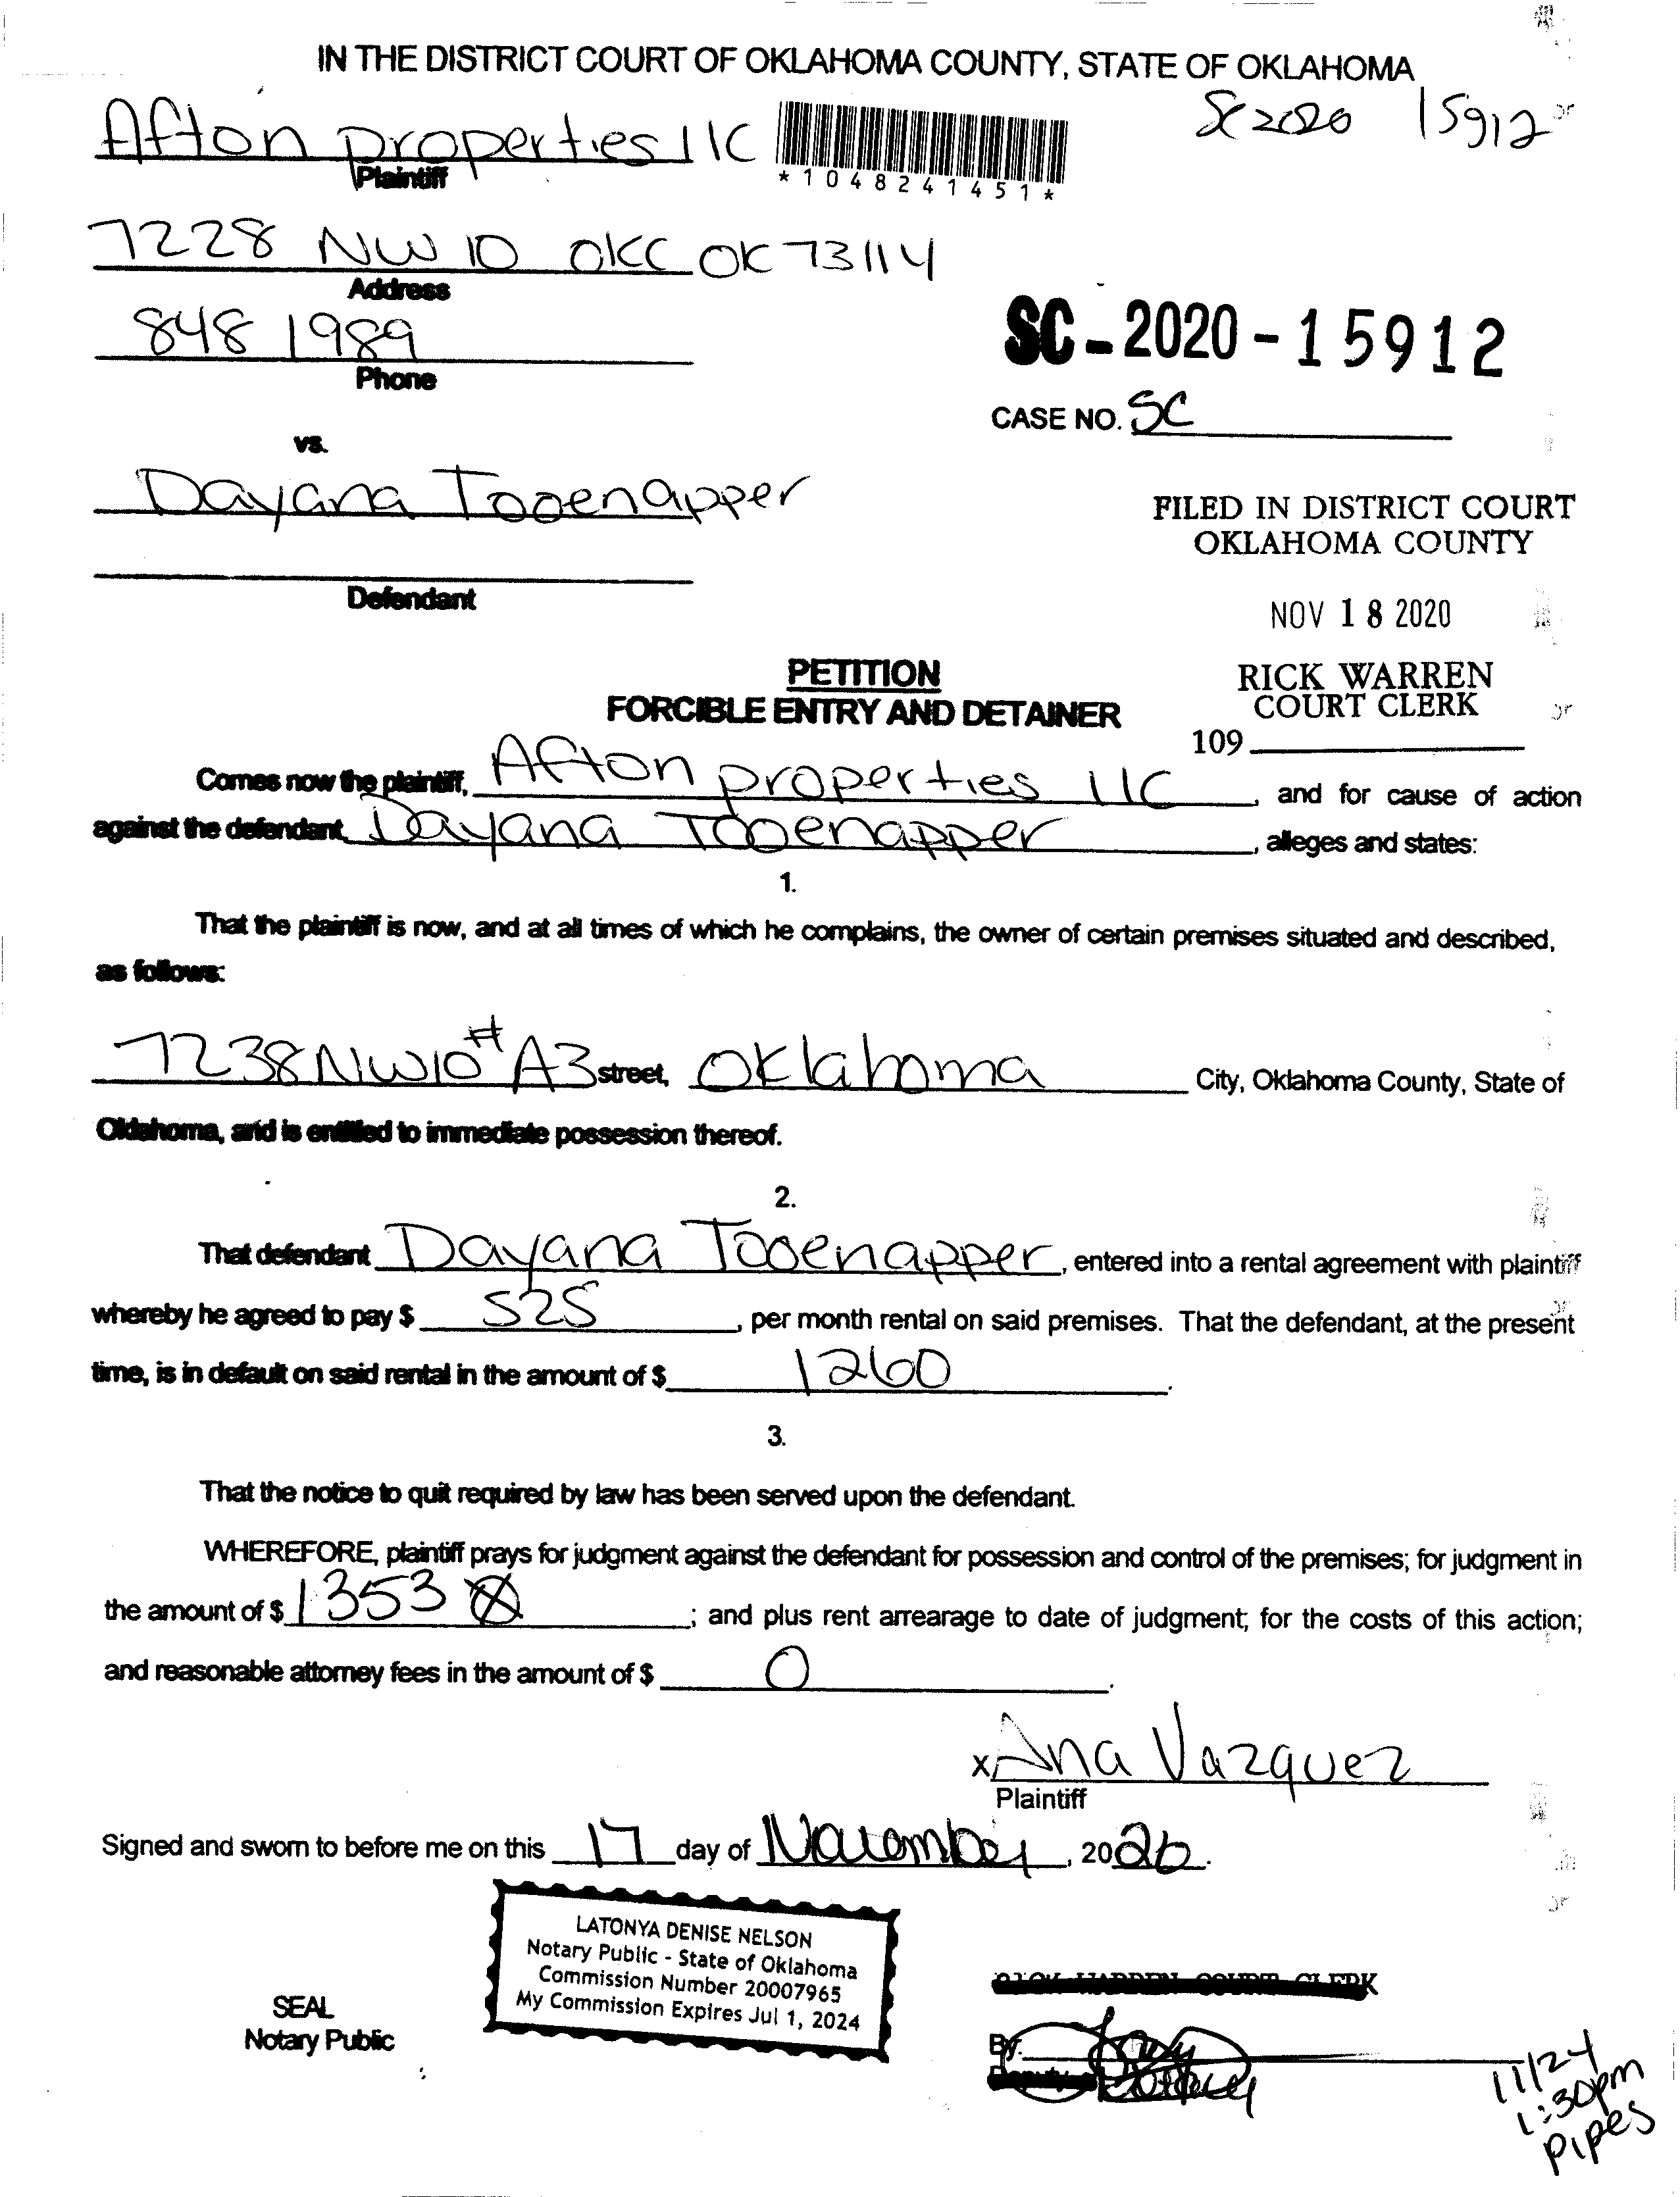 IN THE DISTRICT COURT OF OKLAHOMA COUNTY, STATE OF OKLAHOMA
SC2020 15912
Afton properties llC
Plaintiff
*1048241451*
7228 NW 10 OKC OK 73114
Address
848 1989
Phone
SC-2020-15912
CASE NO. SC
vs.
Dayana Tooenapper
Defendant
FILED IN DISTRICT COURT
OKLAHOMA COUNTY
NOV 18 2020
RICK WARREN
COURT CLERK
109
PETITION
FORCIBLE ENTRY AND DETAINER
Comes now the plaintiff, Afton properties llC, and for cause of action
against the defendant, Dayana Tooenapper, alleges and states:
1.
That the plaintiff is now, and at all times of which he complains, the owner of certain premises situated and described,
as follows:
7238 NW10 #A3 street, Oklahoma City, Oklahoma County, State of
Oklahoma, and is entitled to immediate possession thereof.
2.
That defendant Dayana Tooenapper, entered into a rental agreement with plaintiff
whereby he agreed to pay $ 525, per month rental on said premises. That the defendant, at the present
time, is in default on said rental in the amount of $ 1260.
3.
That the notice to quit required by law has been served upon the defendant.
WHEREFORE, plaintiff prays for judgment against the defendant for possession and control of the premises; for judgment in
the amount of $ 1353; and plus rent arrearage to date of judgment; for the costs of this action;
and reasonable attorney fees in the amount of $ 0.
x Ana Vazquez
Plaintiff
Signed and sworn to before me on this 17 day of November, 2020.
LATONYA DENISE NELSON
Notary Public - State of Oklahoma
Commission Number 20007965
My Commission Expires Jul 1, 2024
SEAL
Notary Public
RICK WARREN COURT CLERK
By:
Deputy
11/24
1:30pm
Pipes